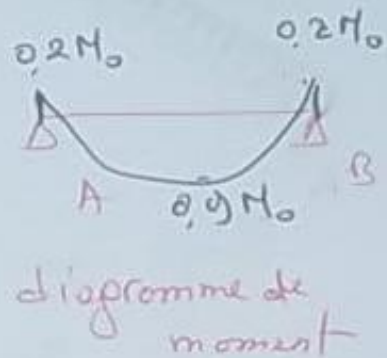 0,2M₀
0,2M₀
A
B
0,9M₀
diagramme de
moment